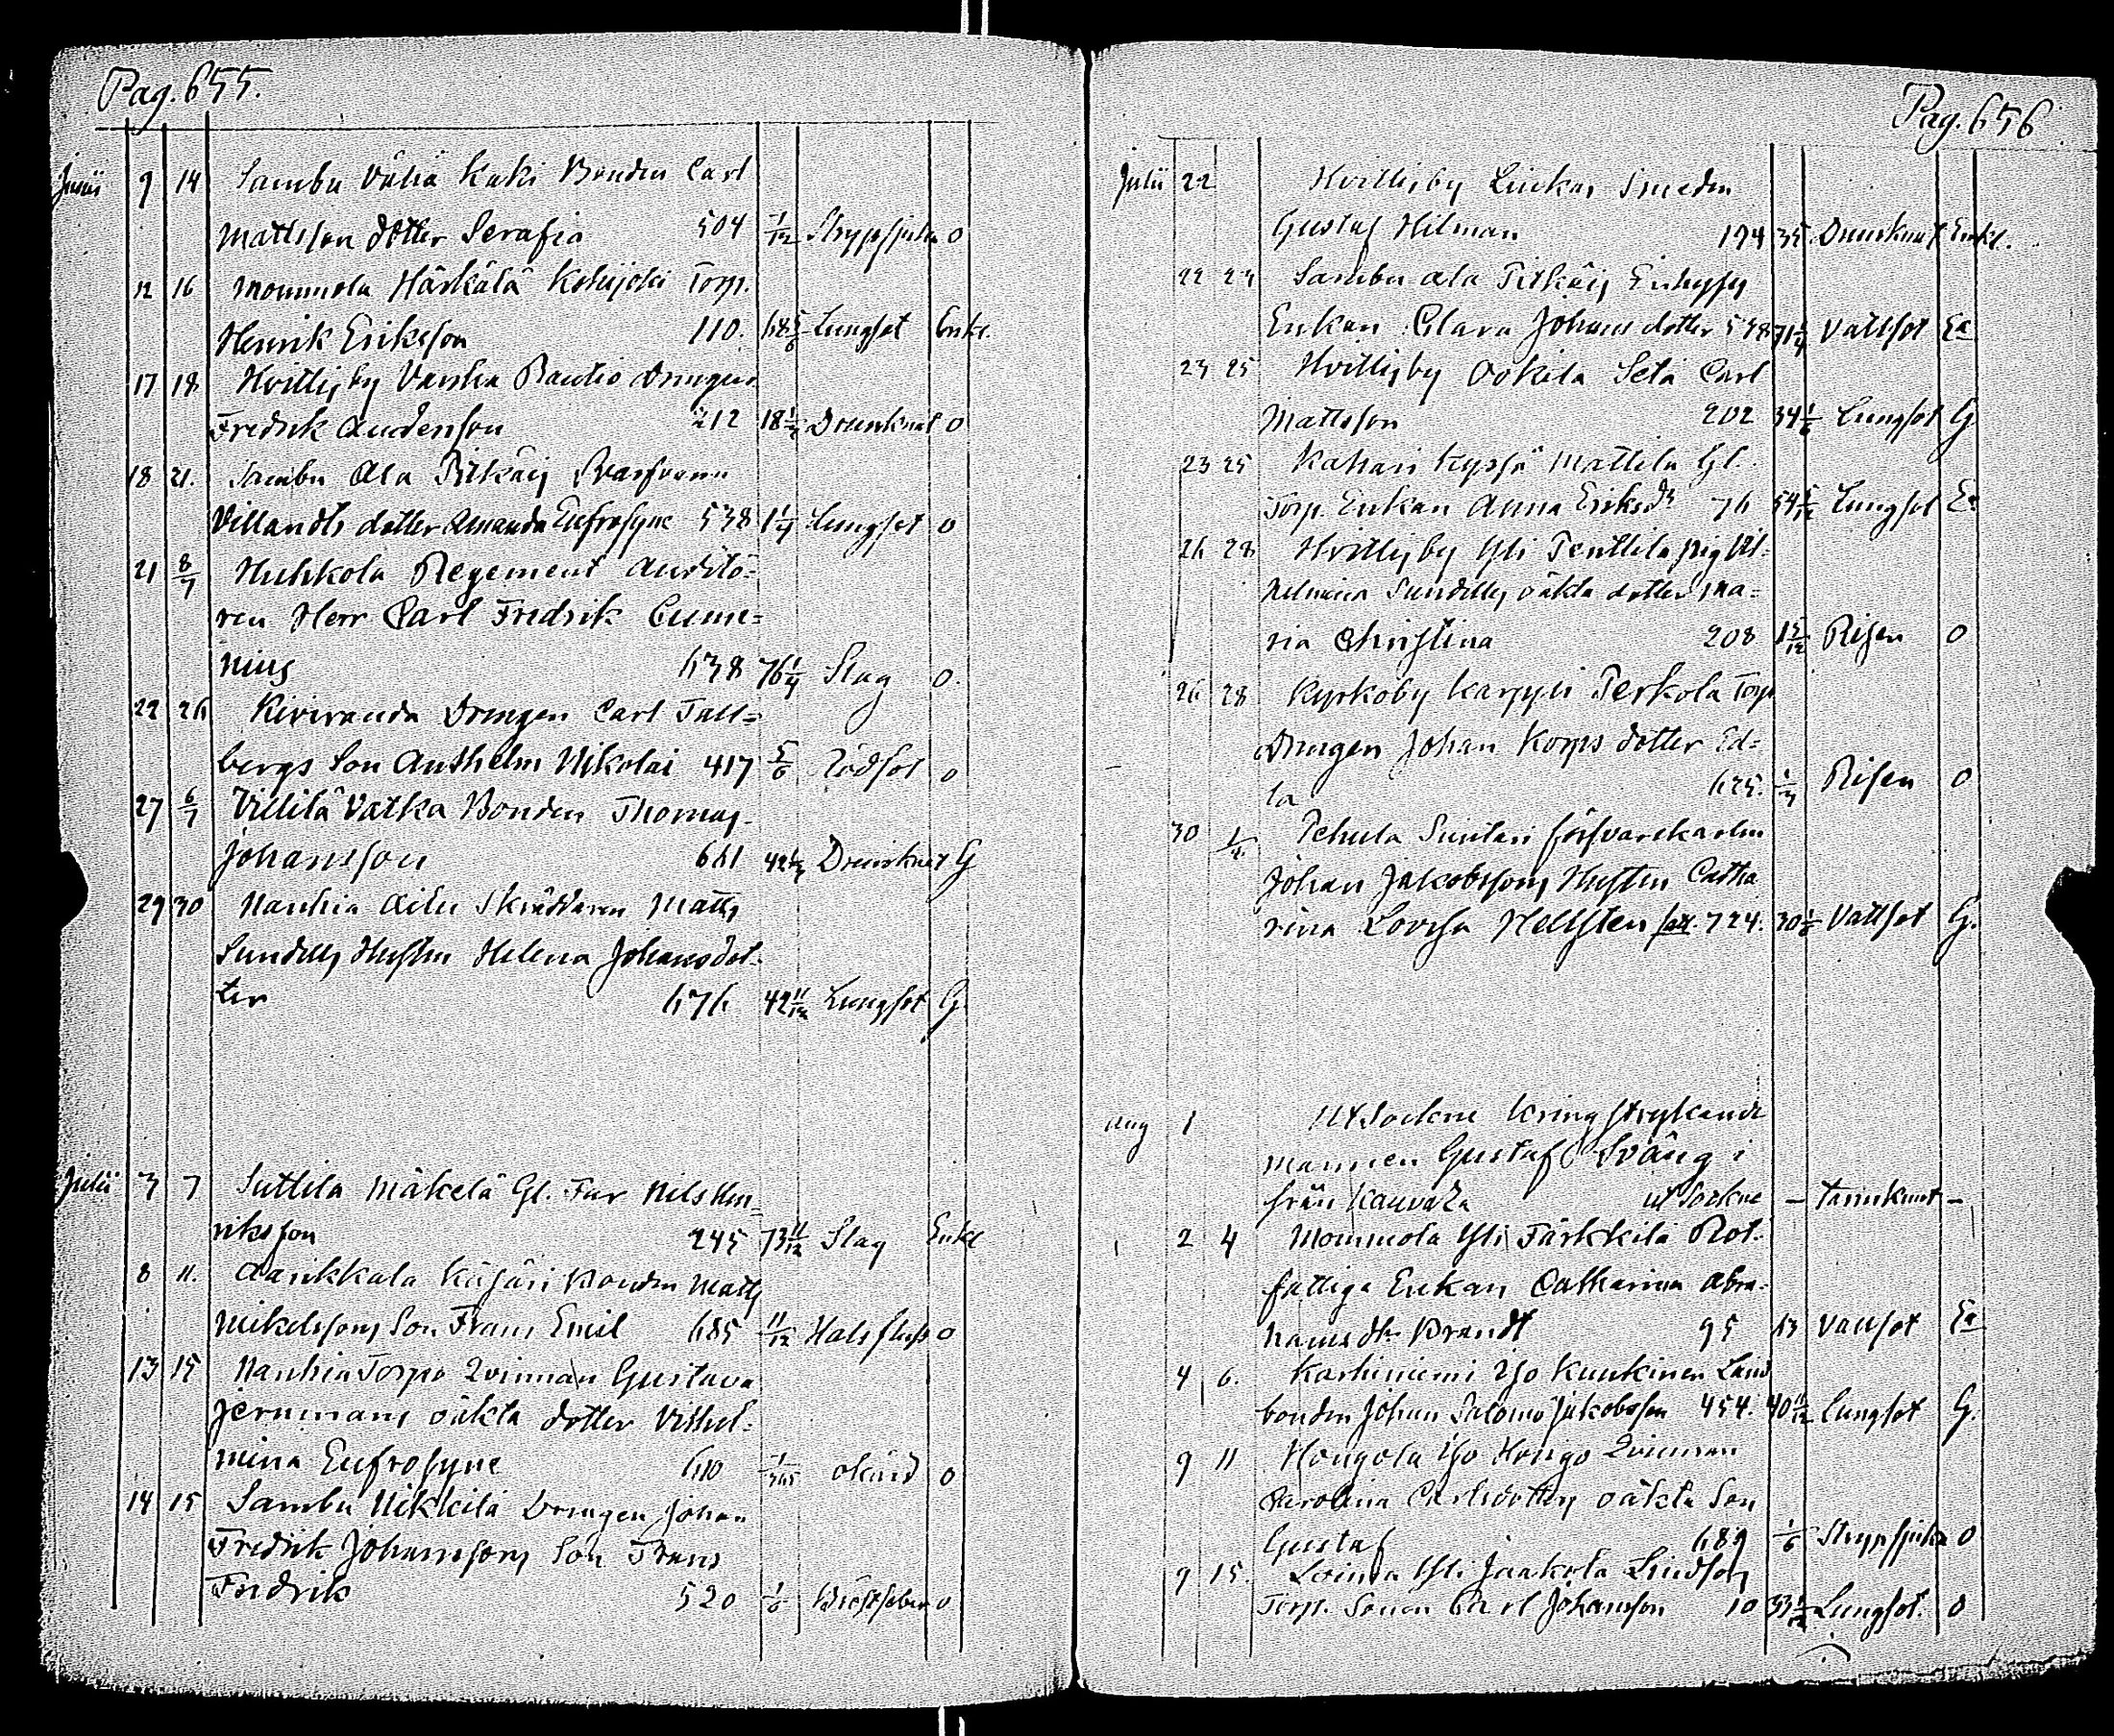 Pag. 655.
Junii 9 14 Sambu Vähä Kaki Bonden Carl
Mattsson dotter Serafia 504 1/12 Strypsjuka o
12 16 Mommola Härkälä Torp.
Henrik Eriksson 110. 68 5/6 Lungsot Enkl.
17 18 Hvittisby Vanha Rautio Drengen
Fredrik Andersson 212 18 1/2 Drunknat o
18 21. Sambu Ala Pitkäis
Villandts dotter Amanda Eufrosyne 538 1 1/4 Lungsot o
21 8/7 Huhkola Regement Auditö=
ren Herr Carl Fredrik Cume=
nius 638 76 1/4 Slag o.
22 26 Kiviranda Drengen Carl Tall=
bergs Son Anshelm Nikolai 417 5/6 Rödsot o
27 6/7 Villilä Vatka Bonden Thomas
Johansson 661 42 1/2 Drunknat G
29 30 Nanhia Skräddaren Matts
Sundells Hustru Helena Johansdot=
ter 676 42 11/12 Lungsot G
Julii 3 7 Suttila Mäkelä Gl. Far Nils Hen=
riksson 245 73 11/12 Slag Enkl
8 11. Bonden Matts
Mikelssons Son Frans Emil 685 11/12 Halsfluss o
13 15 Nanhia Torpa Qvinnan Gustava
Jernmans oäkta dotter Vilhel=
mina Eufrosyne 610 1/365 okänd o
14 15 Sambu Nikkilä Drengen Johan
Fredrik Johanssons Son Frans
Fredrik 520 1/6 Bröstfeber o
Pag. 656
Julii 22 Hvittisby Smeden
Gustaf Hilman 194 35 Drunknat Enkl.
22 24 Sambu Ala Pitkäis Inhyses
Enkan Clara Johans dotter 538 71 1/4 Vattsot Ea
23 25 Hvittisby Carl
Mattsson 202 34 1/6 Lungsot G
23 25 Kahari Mattila Gl.
Torp. Enkan Anna Eriksdr 76 54 5/12 Lungsot Ea
26 28 Hvittisby Yli Penttila pig Vil=
helmina Sundells oäkta dotter Ma=
ria Christina 208 1 5/12 Risen o
26 28 Kyrkoby Karppi Perkola Torp
Drengen Johan Korps dotter Ed=
la 625. Risen o
30 Suntari försvarskarlen
Johan Jakobssons Hustru Catha
rina Lovisa Hellsten fatt. 724. 30 1/6 Vattsot G.
Aug 1 Utsockne kringstrykande
mannen Gustaf Sväng i
från utsockne —
2 4 Mommola Yli Färkkilä Rot.
fattiga Enkan Catharina Abra=
hamsdtr Brandt 95 Vattsot Ea
4 6. Karhiniemi Yso Kuukinen Land
bonden Johan Salomo Jakobsson 454. 40 11/12 Lungsot G.
9 11 Hongola Yso Hongo Qvinnan
Karolina Carlsdotters oäkta Son
Gustaf 689 1/6 Strypsjuka o
9 15. Loima Yli Jaakola
Torp. Sonen Carl Johansson 10 Lungsot. o